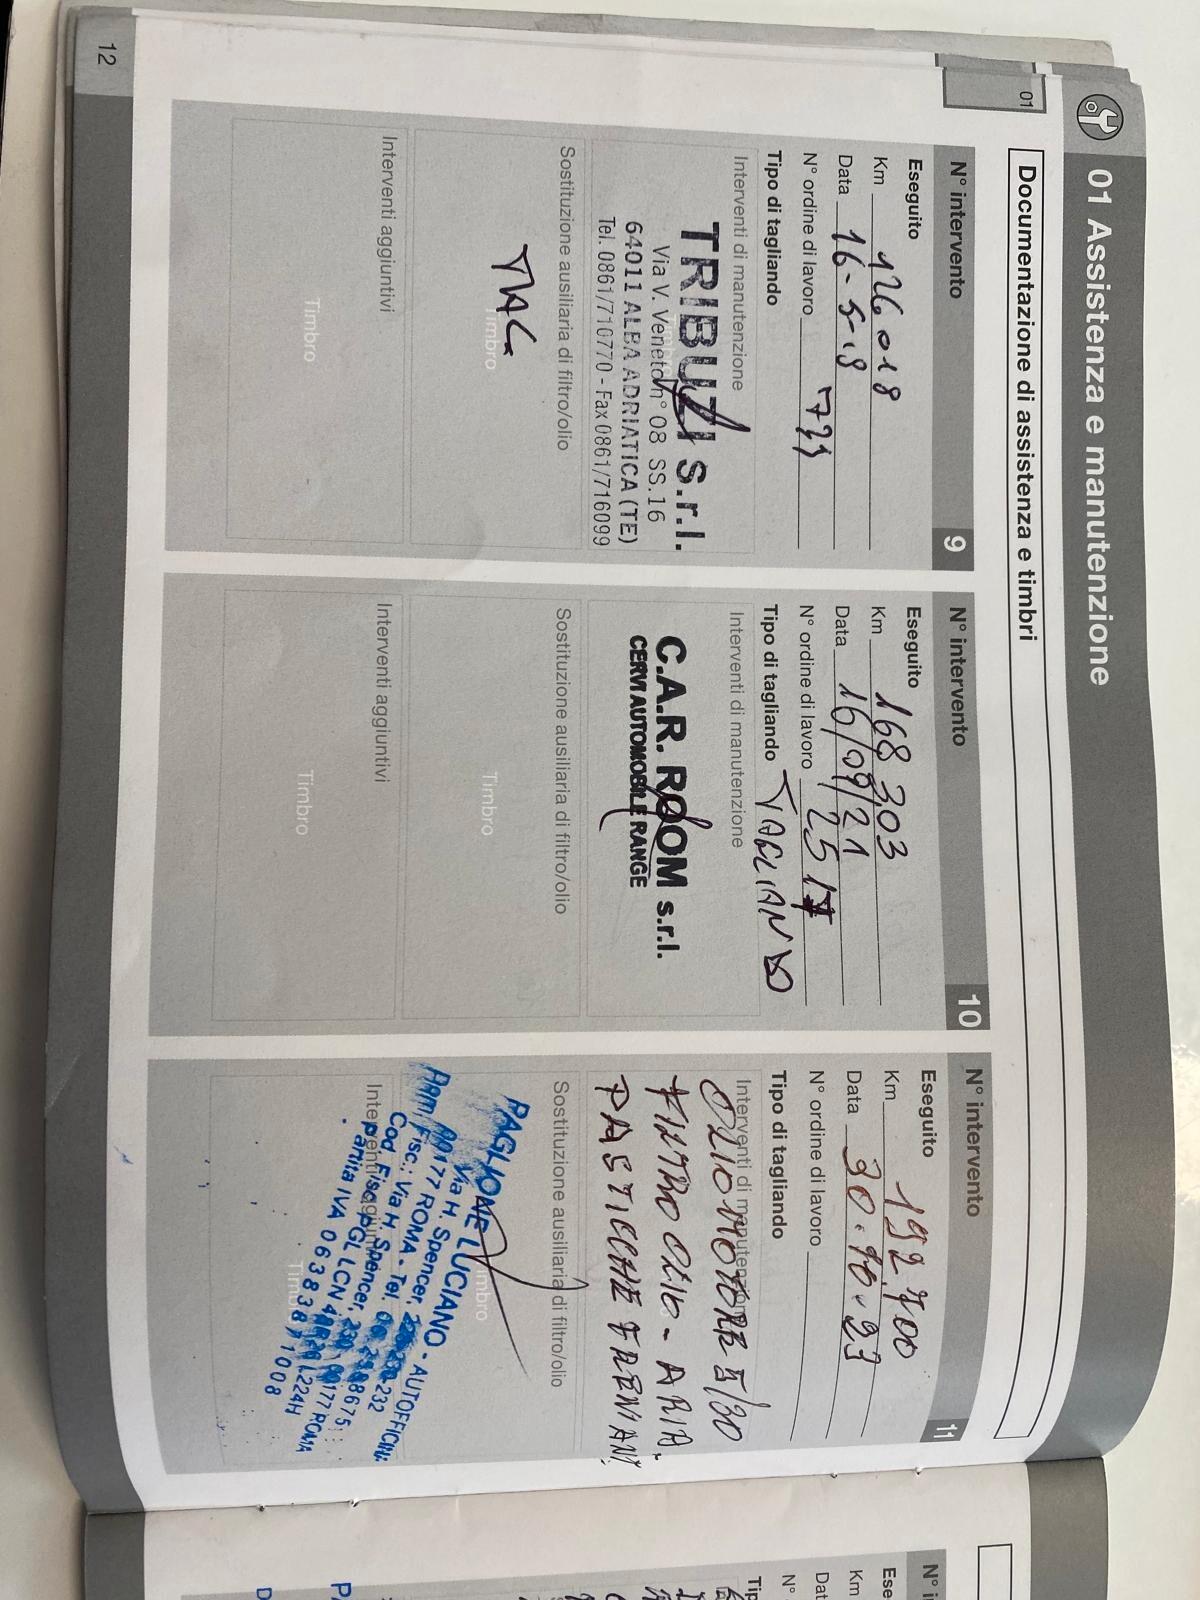 01 Assistenza e manutenzione
01
Documentazione di assistenza e timbri
N° intervento 9
Eseguito
Km 126018
Data 16-5-19
N° ordine di lavoro
Tipo di tagliando
Interventi di manutenzione
TRIBUZI s.r.l.
Via V. Veneto n° 08 SS.16
64011 ALBA ADRIATICA (TE)
Tel. 0861/710770 - Fax 0861/716099
Sostituzione ausiliaria di filtro/olio
TAG
Timbro
Interventi aggiuntivi
Timbro
N° intervento 10
Eseguito
Km 168303
Data 16/09/21
N° ordine di lavoro 2517
Tipo di tagliando TAGLIANDO
Interventi di manutenzione
C.A.R. ROOM s.r.l.
CERVI AUTOMOBILE RANGE
Sostituzione ausiliaria di filtro/olio
Timbro
Interventi aggiuntivi
Timbro
N° intervento 11
Eseguito
Km 192.700
Data 30.10.23
N° ordine di lavoro
Tipo di tagliando
Interventi di manutenzione
OLIO MOTORE 5/30
FILTRO OLIO - ARIA,
PASTICCHE FRENI ANT.
Sostituzione ausiliaria di filtro/olio
PAGLIONE LUCIANO - AUTOFFICINA
Via H. Spencer, 232
00177 ROMA - Tel.
Fisc.: Via H. Spencer, 00177 ROMA
Cod. Fisc. PGL LCN L224H
Partita IVA 06383871008
Timbro
Interventi aggiuntivi
Timbro
12
N° i
Ese
Km
Dat
N°
Tip